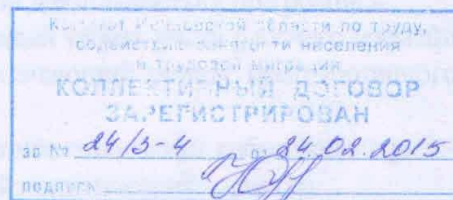 Комитет Ивановской области по труду,
содействию занятости населения
и трудовой миграции
КОЛЛЕКТИВНЫЙ ДОГОВОР
ЗАРЕГИСТРИРОВАН
за № 24/3-4 от 24.02.2015
подпись